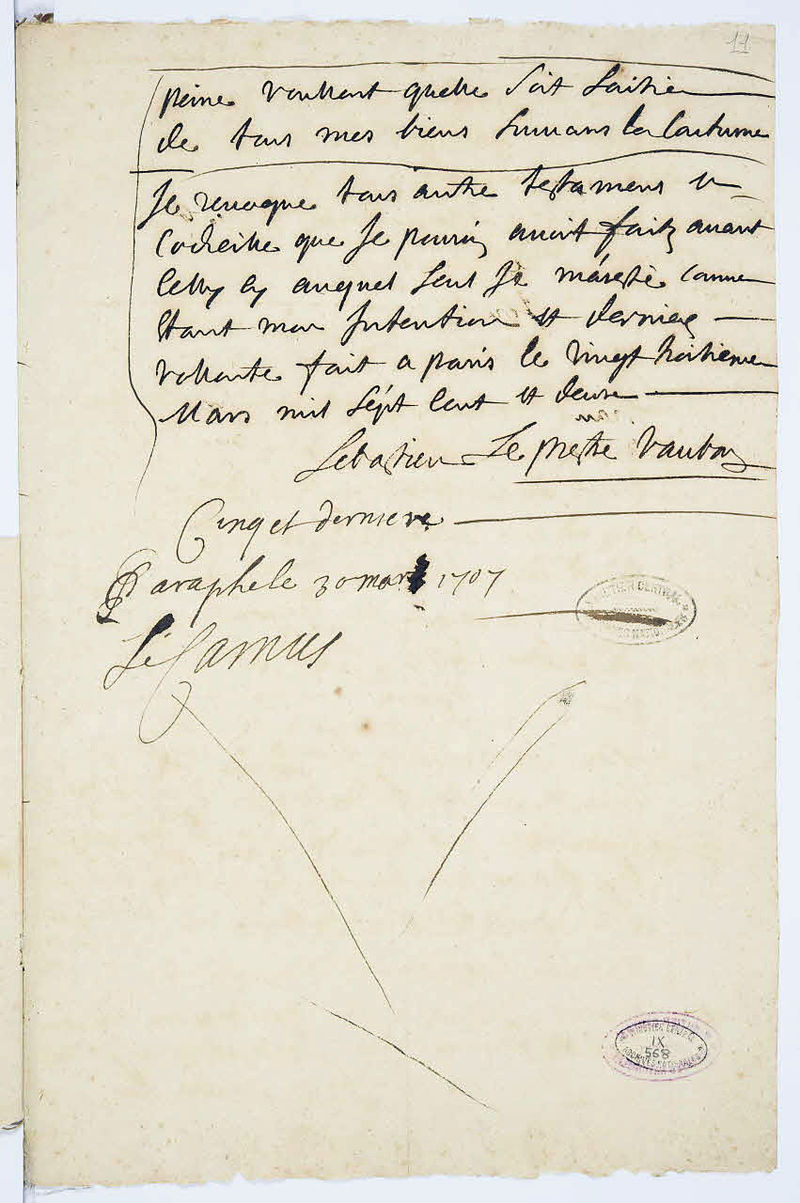 11
peine voullant quelle soit saisie
de tous mes biens suivans la Coutume
Je revoque tous autre testamens et
Codicille que Je pouroi avoir faitz avant
celluy cy auquel seul Je m'áreste comme
Étant mon Intention et derniere
vollonte fait a paris le vingt troisieme
Mars mil sépt cent et deux
Sebastien Le prestre Vauban
Cinq et derniere
Paraphé le 30 mars 1707
Le Camus
MINUTIER CENTRAL
IX
568
ARCHIVES NATIONALES